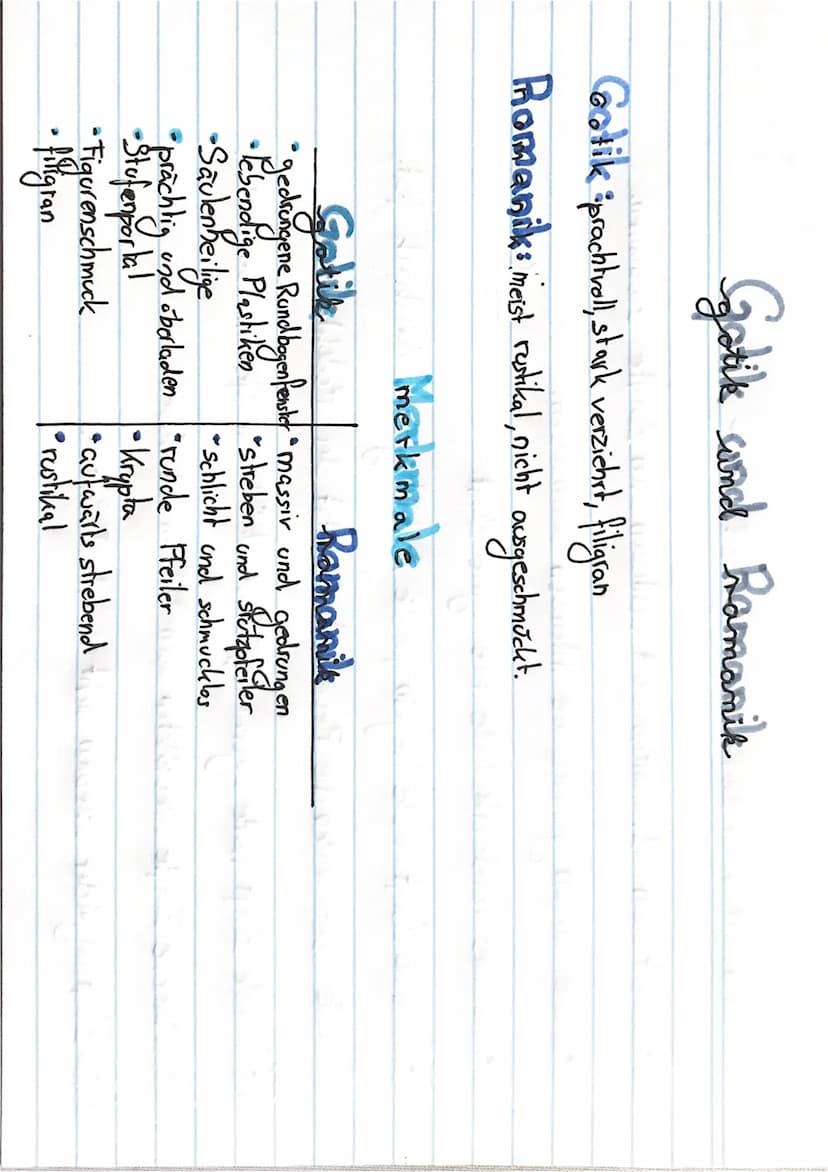 Gotik und Romanik
Gotik: prachtvoll, stark verziehrt, filigran
Romanik: meist rustikal, nicht ausgeschmückt.
Merkmale
Gotik Romanik
• gedrungene Rundbogenfenster • massiv und gedrungen
• lebendige Plastiken • streben und stützpfeiler
• Säulenheilige • schlicht und schmucklos
• prächtig und überladen • runde Pfeiler
• Stufenportal • Krypta
• Figurenschmuck • aufwärts strebend
• filigran • rustikal